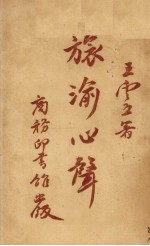 王雲五著
旅渝心聲
商務印書館發